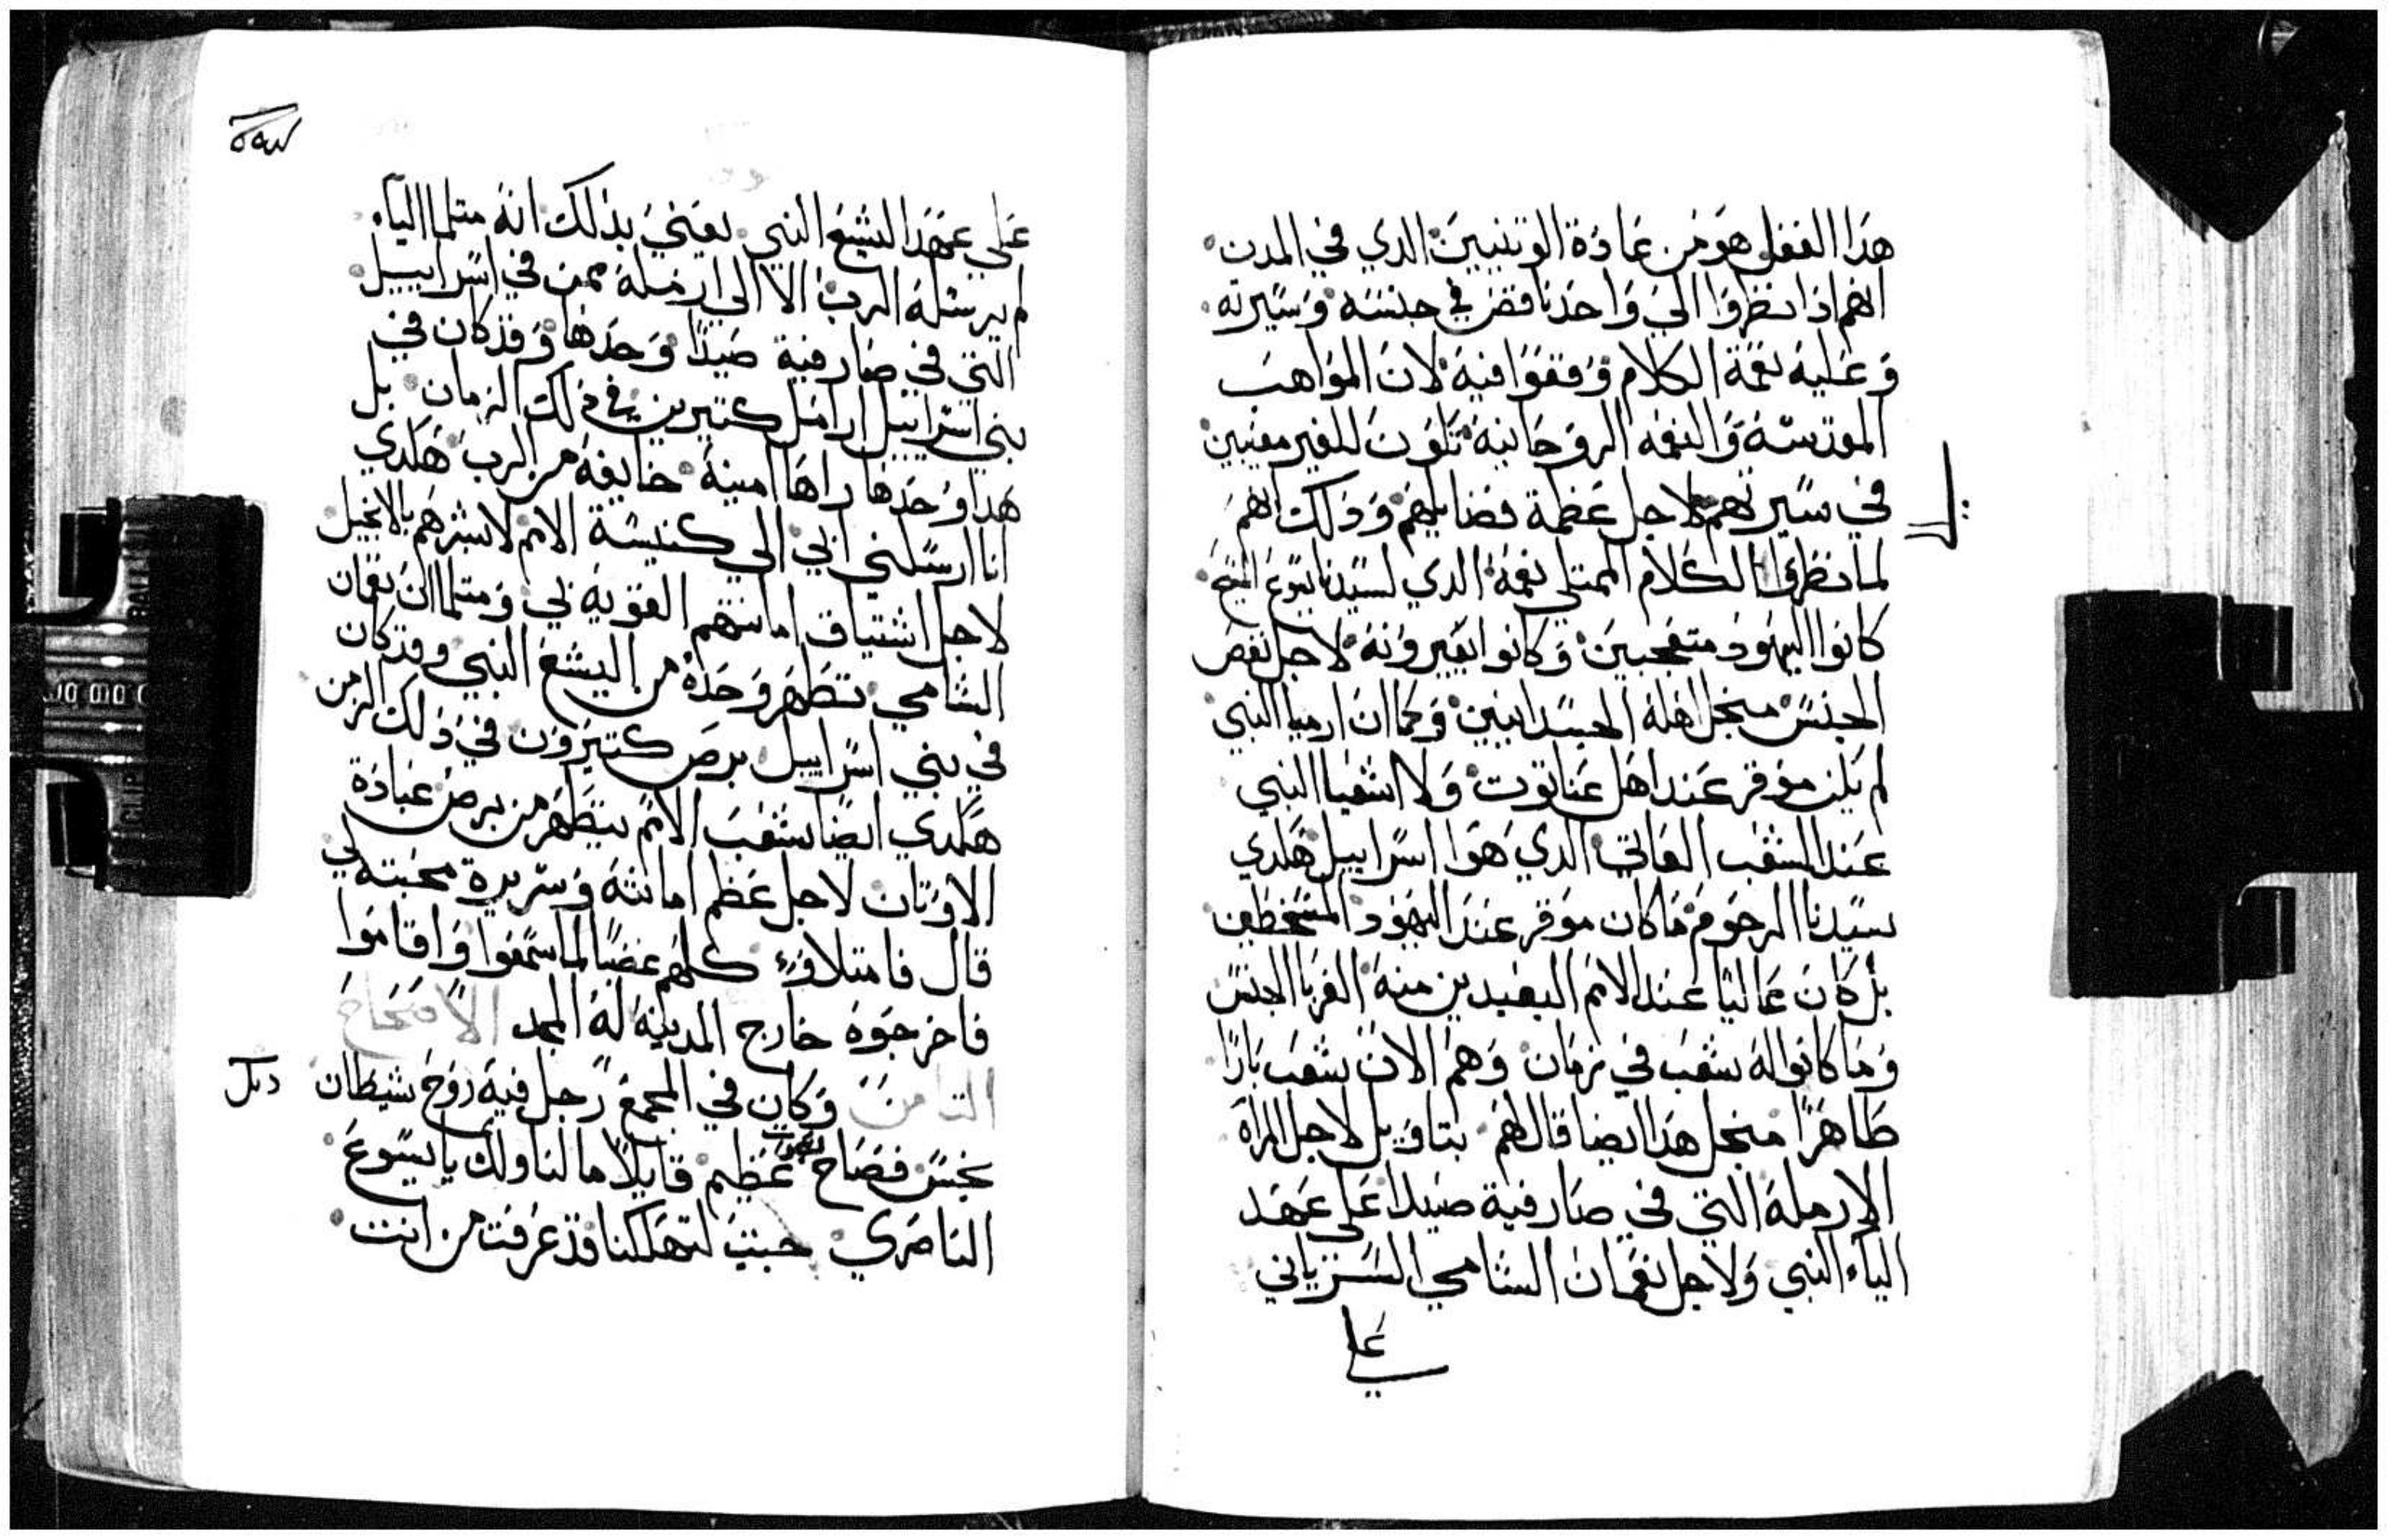 هذا الفعل هو من عادة الوتنيين الدي في المدن
انهم اذا نظروا الي واحد ناقص في جنسه وسيرته
وعليه نعمة الكلام وقفوا فيه لان المواهب
المقدسة والنعمه الروحانيه تكون للغير معيبين
في سيرتهم لاجل عظمة فضايلهم وذلك انهم
لما نظروا الكلام الممتلي نعمة الدي لسيدنا يسوع المسيح
كانوا اليهود متعجبين وكانوا يعيرونه لاجل نقص
الجنس منجل اهله الجسدانيين وكما ان ارميا النبي
لم يكن موقر عند اهل عناتوت ولا اشعيا النبي
عند الشعب العاتي الدي هوا اسراييل هكدي
سيدنا الرحوم ما كان موقر عند اليهود المسخطين
بل كان عاليا عند الامم البعيدين منه الغربا الجنس
وما كانوا له شعب في زمان وهم الان شعب بارا
طاهرا منجل هدا ايضا قال لهم بتاويل لاجل المراه
الارملة التي في صارفية صيدا علي عهد
الياء النبي ولاجل نعمان الشامي السرياني
علي
علي عهد اليشع النبي يعني بذلك انه متلما الياء
لم يرسله الرب الا الي ارملة ممن في اسراييل
التي في صارفية صيدا وحدها وقد كان في
بني اسراييل ارامل كتيرين في ذلك الزمان بل
هدا وحدها راها امينة خايفة من الرب هكدي
انا ارسلني ابي الي كنيسة الامم لابشرهم بالانجيل
لاجل اشتياق امانتهم القوية بي ومتلما ان نعمان
الشامي تطهر وحده من اليشع النبي وقد كان
في بني اسراييل برص كتيرون في ذلك الزمن
هكدي ايضا شعب الامم يتطهر من برص عبادة
الاوتان لاجل عظم امانته وسريرة محبته لي
قال فامتلاوء كلهم غضبا لما سمعوا واقاموا
فاخرجوه خارج المدينه له المجد الاصحاح
التامن وكان في المجمع رجل فيه روح شيطان
نجس فصاح بصوت عظيم قايلا ما لنا ولك يا يسوع
الناصري جيت لتهلكنا قد عرفت من انت